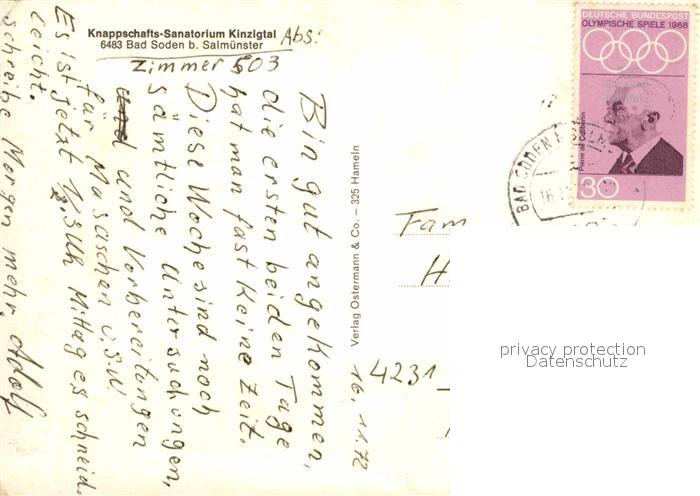 Knappschafts-Sanatorium Kinzigtal
6483 Bad Soden b. Salmünster
Abs:
Zimmer 503
Bin gut angekommen,
die ersten beiden Tage
hat man fast keine Zeit.
Diese Woche sind noch
sämtliche Untersuchungen,
und Vorbereitungen
für Masaschen u.s.w
Es ist jetzt ½3Uh Mittag es schneid.
leicht.
schreibe Morgen mehr. Adolf
Verlag Ostermann & Co. – 325 Hameln
16.11.72
DEUTSCHE BUNDESPOST
OLYMPISCHE SPIELE 1968
Pierre de Coubertin
30
BAD SODEN
16.
Fam
H
4231
privacy protection
Datenschutz